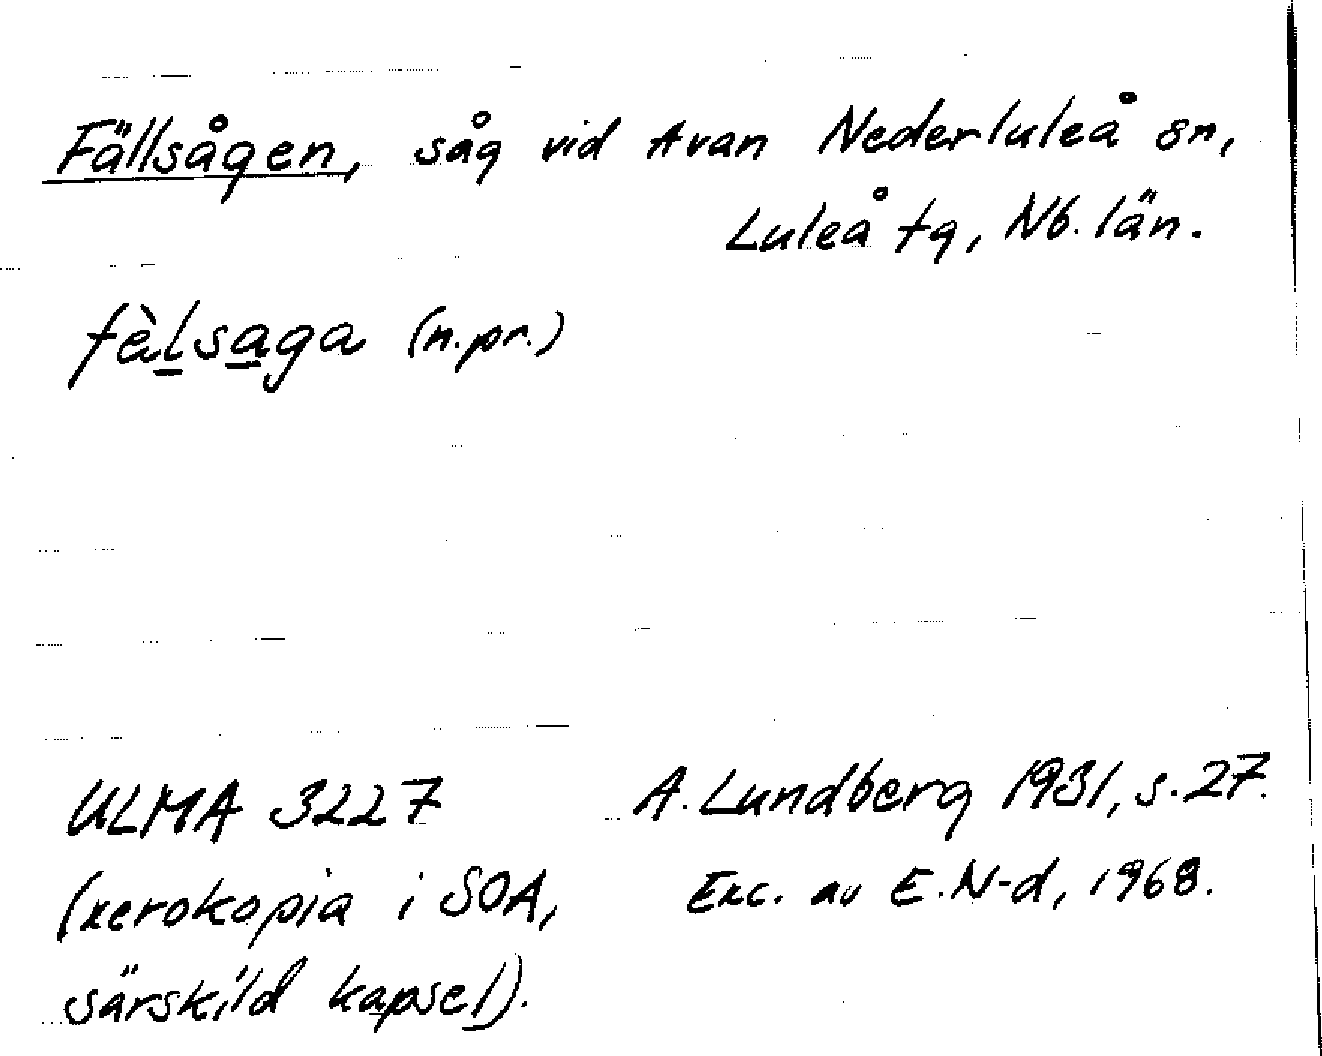 Fällsågen, såg vid Avan Nederluleå sn,
Luleå tg, Nb. län.
fèlsaga (n.pr.)
ULMA 3227
(xerokopia i SOA,
särskild kapsel).
A. Lundberg 1931, s. 27.
Exc. av E. N-d, 1968.